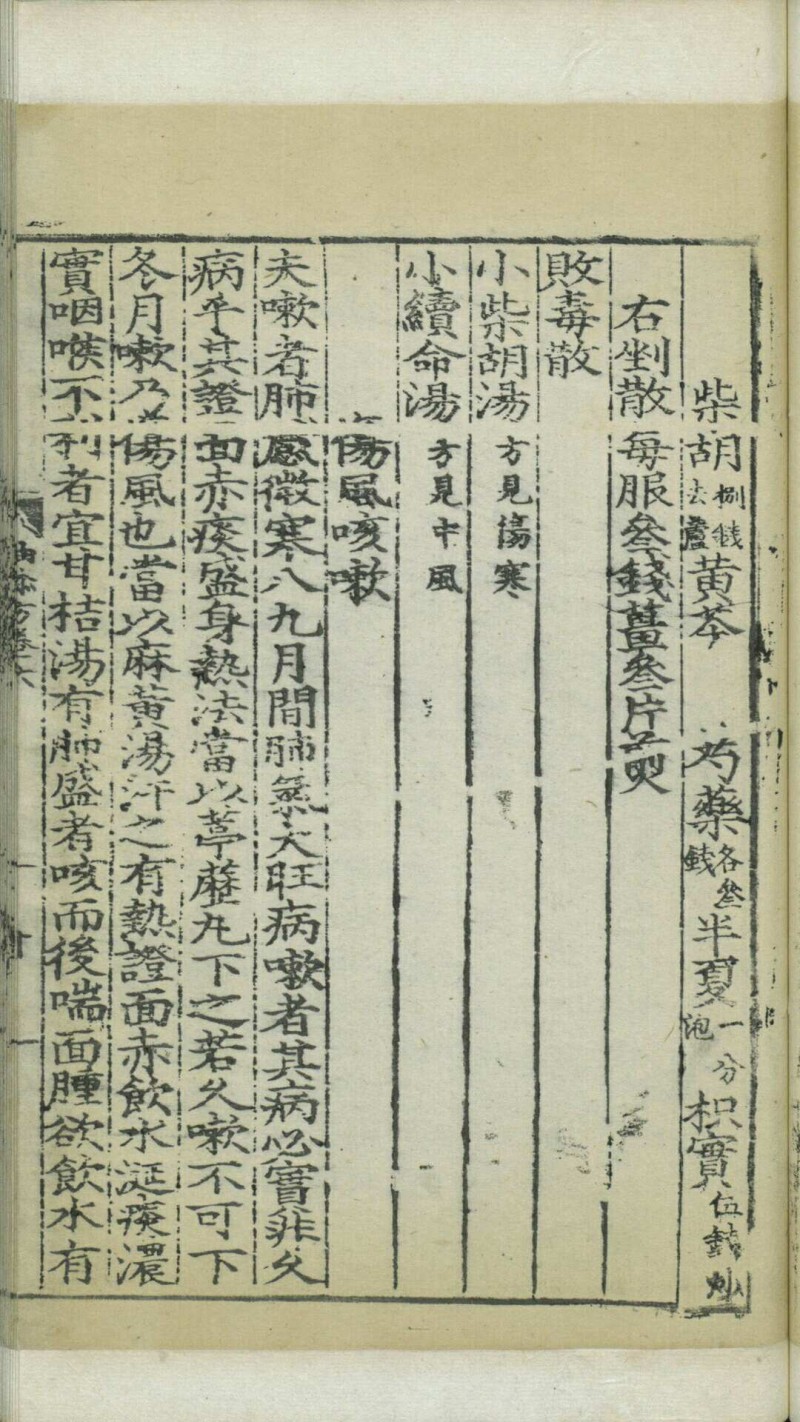 柴胡捌錢去蘆黃芩 芍藥各叄錢半夏一分泡枳實伍錢炒
右剉散每服叄錢薑叄片煎
敗毒散
小柴胡湯 方見傷寒
小續命湯 方見中風
傷風咳嗽
夫嗽者肺感微寒八九月間肺氣大旺病嗽者其病必實非久
病乎其證面赤痰盛身熱法當以葶藶丸下之若久嗽不可下
冬月嗽乃傷風也當以麻黃湯汗之有熱證面赤飲水涎痰濃
實咽喉不利者宜甘桔湯有肺盛者咳而後喘面腫欲飲水有